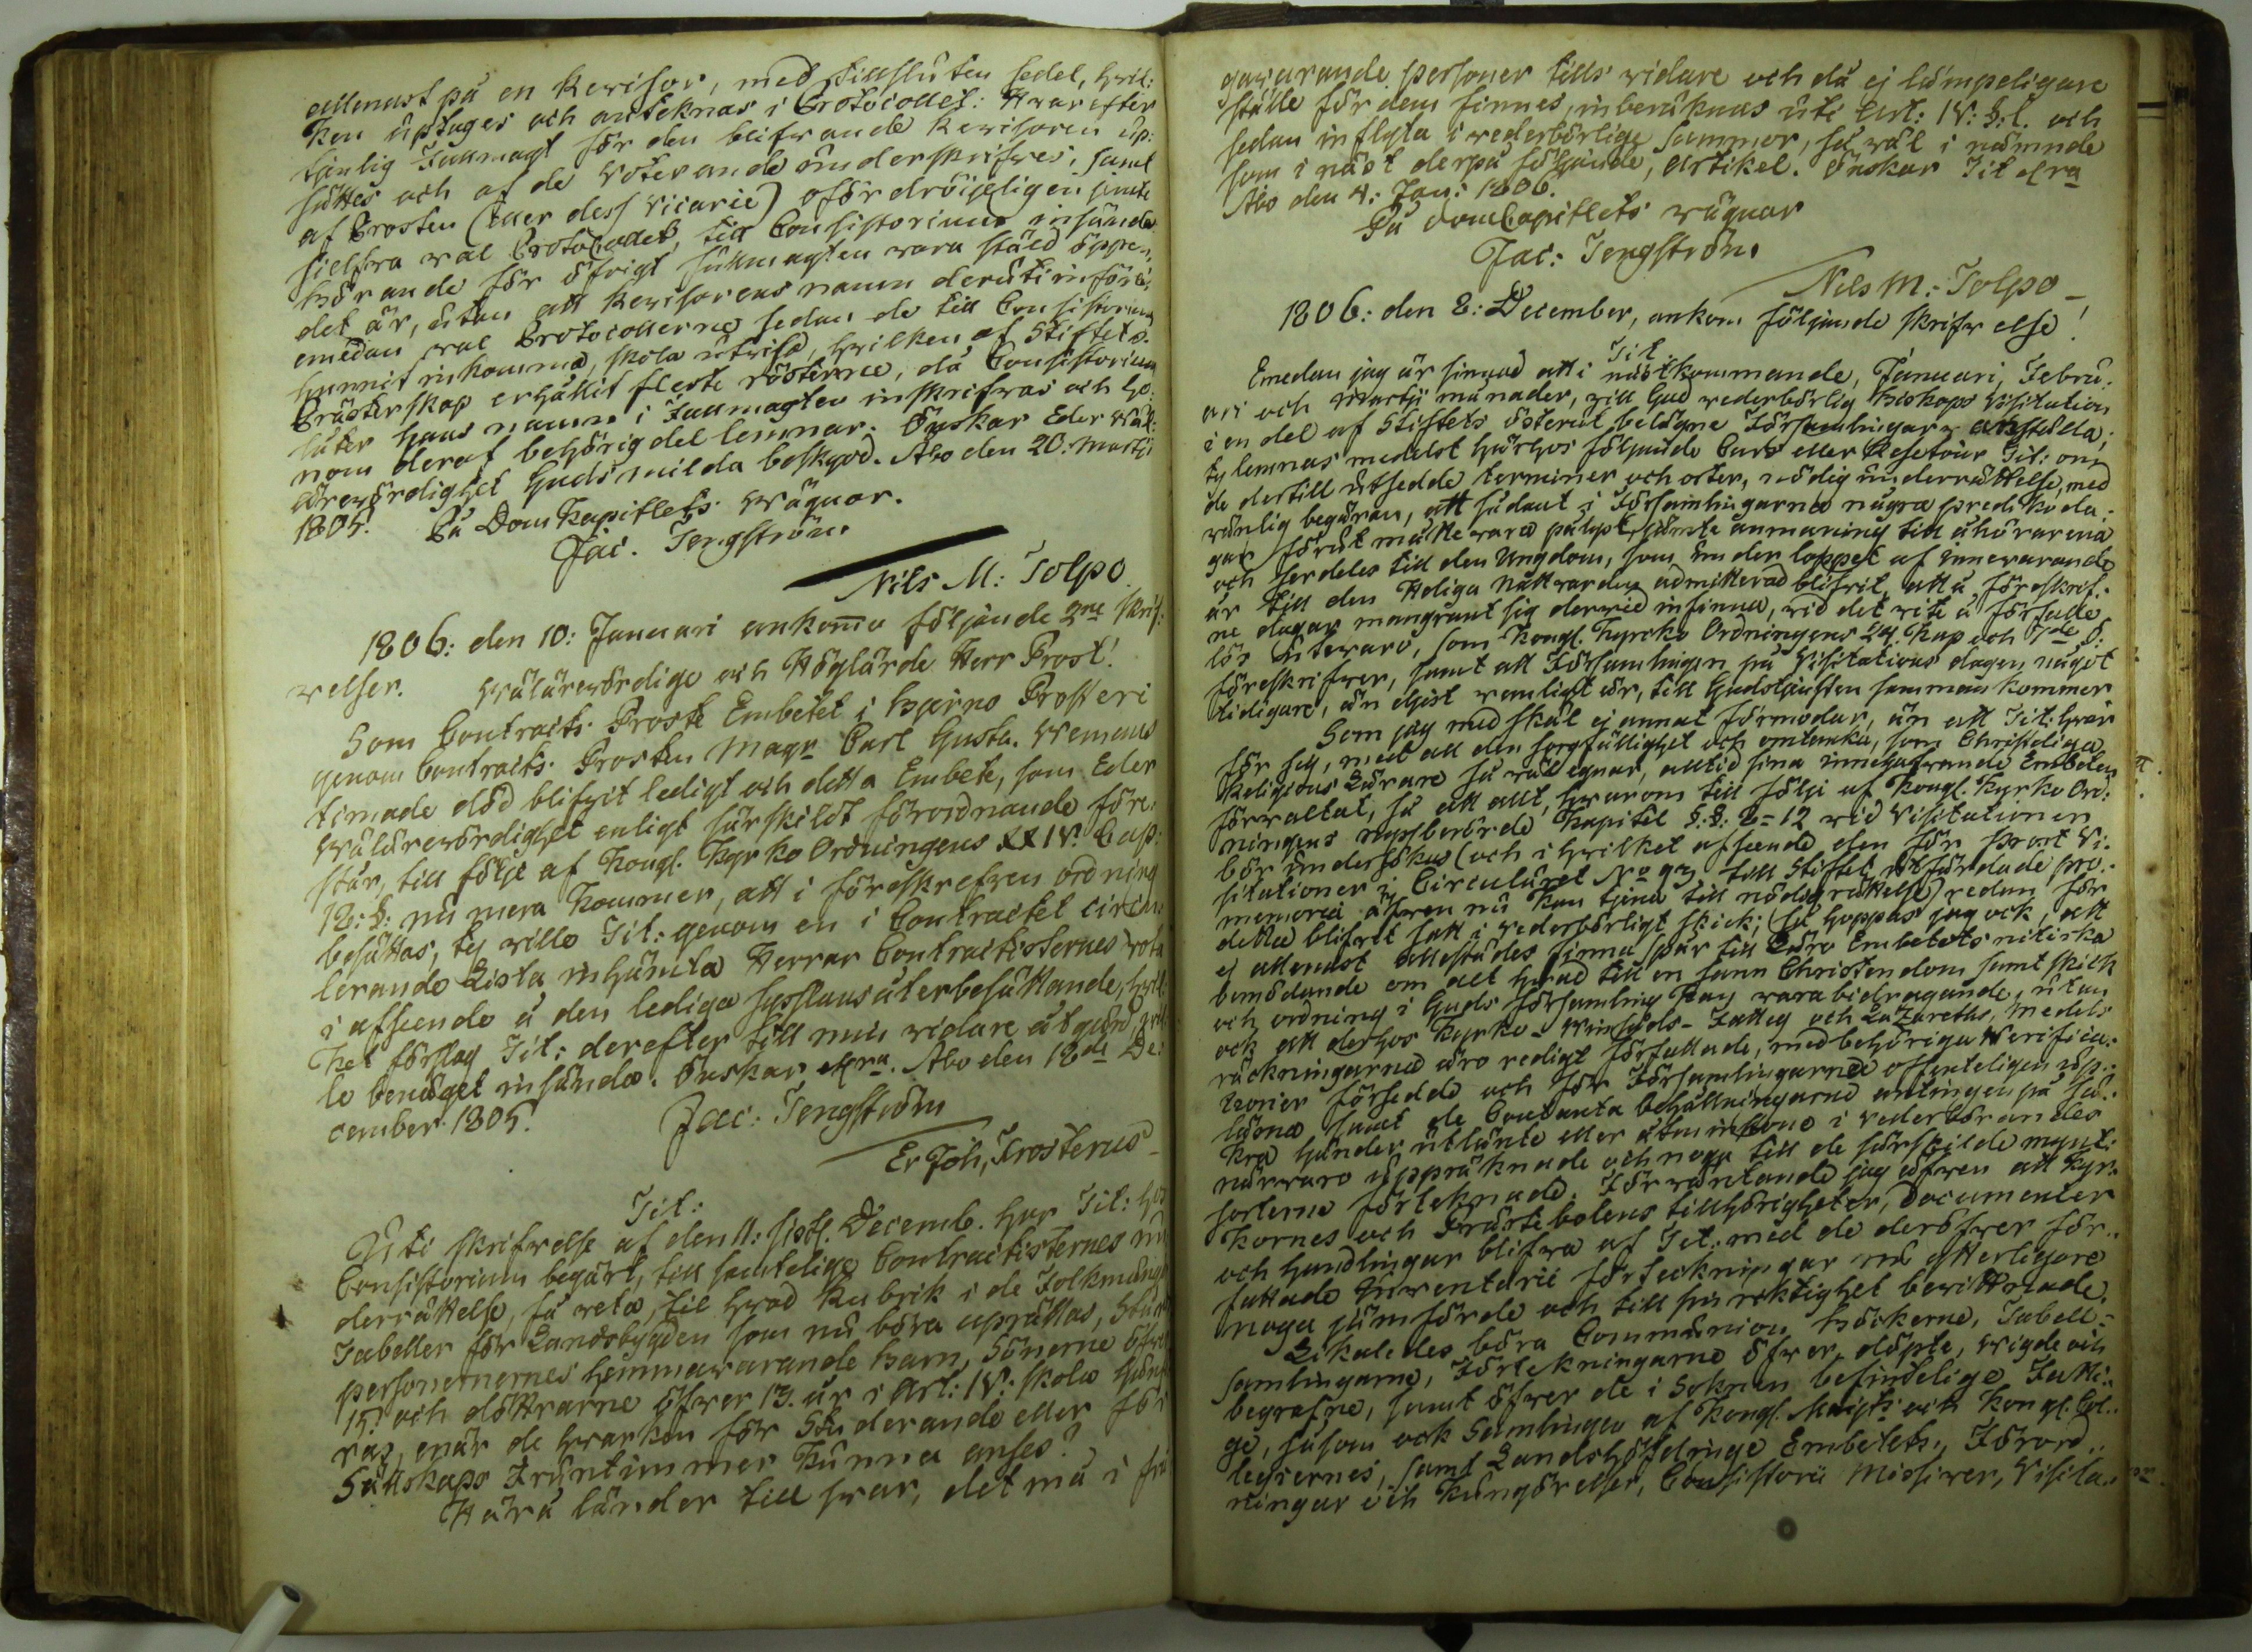 allenast på en Revisor, med tillsluten sedel, hvil:
ken uptages och anteknas i Protocollet: Hvarefter
tjänlig Fullmagt för den blifvande Revisoren up:
sättes och af de voterande underskrifves, samt
af Prosten (eller dess Vicarie) ofördröijeligen jemte
sielfva val Protocollet, till Consistorium insändes
börande för öfrigt fullmagten vara stäld öppen,
det är, utan att Revisorens namn deruti införes,
emedan val Protocollerne sedan de till Consistorium
hunnit inkomma, skola utvisa, hvilken af Stiftets
Prästerskap erhållit fleste rösterne, då Consistorium
låter hans namn i Fullmagten inskrifvas och ho:
nom deraf behörig del lemnar. Önskar Eder Väl:
ärevördighet Guds milda beskydd. Åbo den 20. Martii
1805. På DomKapitlets vägnar.
Jac. Tengström
Nils M: Tolpo
1806: den 10: Januari ankomo följande 2ne skrif:
velser. Välärevördige och Höglärde Herr Prost!
Som Contracts Prosts Embetet i Bjerno Prosteri
genom Contracts Prosten Magr Carl Gust. Wemans
timade död blifvit ledigt och detta Embete, som Eder
Välärevördighet enligt särskildt förordnande före:
står, till följe af Kongl. Kyrko Ordningens XXIV. Cap:
12: §: nu mera kommer, att i föreskrefven ordning
besättas, ty ville Tit: genom en i Contractet circu
lerande Lista inhämta Herrar Contractisternes vota
i afseende å den lediga sysslans återbesättande, hvil
ket förslag Tit: derefter till min vidare åtgärd, vil
le benäget insända. Önskar etc:ra. Åbo den 18de De:
cember 1805. Jac: Tengström
Er Joh, Frosterus
Tit:
Uti skrifvelse af den 11: sistl. Decemb. har Tit: hos
Consistorium begärt, till samtelige Contractisternes un
derrättelse, få veta, til hvad Rubrik i de Folkmängds
Tabeller för Landsbygden som nu böra uprättas, Stånds
personernernes hemmavarande barn, Sönerne öfver
15. och döttrarne öfver 13. år i Art: IV: skola hänfö
ras, enär de hvarken för Studerande eller för
Sällskaps Fruntimmer kunna anses?
Härå länder till svar, det må i frå
gavarande personer tills vidare och då ej lämpeligare
ställe för dem finnes, inberäknas uti Art: IV: §.1. och
sedan inflyta i vederbörlige summor, så väl i nämnde
som i näst derpå följande, Artikel. Önskar Tit etc ra
Åbo den 4: Jan: 1806.
På DomCapitlets vägnar
Jac: Tengström
Nils M: Tolpo
1806: den 2: December, ankom följande skrifvelse!
Tit
Emedan jag är sinnad att i nästkommande, Januari, Febru:
ari och Martii månader, vill Gud vederbörlig Biskops Visitation
i en del af Stiftets österut belägne Församlingar anställa;
ty lemnas medelst härhos följande Curs eller Resetour Tit: om
de dertill utsedde terminer och orter, nödig underrättelse, med
vänlig begäran, att sådant i Församlingarna några prediko da:
gar förut måtte vara pålyst jämte anmaning till åhörarena
och serdeles till den Ungdom, som under loppet af innevarande
år till den Heliga Nattvarden admitterad blifvit, att å föreskrif:
ne dagar mangrant sig dervid infinna, vid det vite å förfalle
lös utevaro, som Kongl. Kyrcko Ordningens 24. Kap och 7de §:
föreskrifver, samt att Församlingen på Visitations dagen, något
tidigare, än eljest vanligt är, till Gudstjensten sammankommer
Som jag med skäl ej annat förmodar, än att Tit: hvar
för sig, med all den sorgfällighet och omtanka, som Christeliga
Religions Lärare så väl egnar, alltid sina innehafvande Embeten
förvaltat, så att allt, hvarom till följe af Kongl. Kyrko Ord:
ningens nyssberörde Kapitel §:§: 2=12 vid Visitationen
bör undersökas (och i hvilket afseende den för Prost Vi:
sitationer i Circuläret No 93 till Stiftet utfärdade pro:
memoria äfven nu kan tjena till nödig rättelse) redan för
detta blifvit satt i vederbörligt skick; så hoppas jag ock, att
ej allenast allestädes finna spår till Läro Embetets nitiska
bemödande om alt hvad till en sann Christendom samt skick
och ordning i Guds församling kan vara bidragande, utan
och att derhos Kyrko- Vinhåds- Fattig och Lazareths, medels
räckningarna äro redigt författade, med behöriga Verifica:
tioner försedde och för Församlingarna offenteligen up:
läsna samt de Contanta behållningarna antingen på sä:
kra händer utlånte eller åtminstone i vederbörandes
närvaro uppräknade och noga till de särskilde mynt:
sorterna förteknade. Förväntande jag äfven att Kyr:
kornes och Prästebolens tillhörigheter, Documenter
och handlingar blifva af Tit: med de deröfver för:
fattade Inventarii förteckningar nu ytterligare
noga jämförde och till sin riktighet bevittnade.
Likaledes böra Communion böckerna, Tabell-
samlingarna, Förtekningarna öfver, döpte, vigde och
begrafne, samt öfver de i Soknen befintelige Fatti:
ge, såsom ock Samlingen af Kongl. Majts och Kongl. Col:
legiernes, samt Landshöfdinge Embetets, Förord:
ningar och Kungörelser, Consistorii Missiver, Visita: